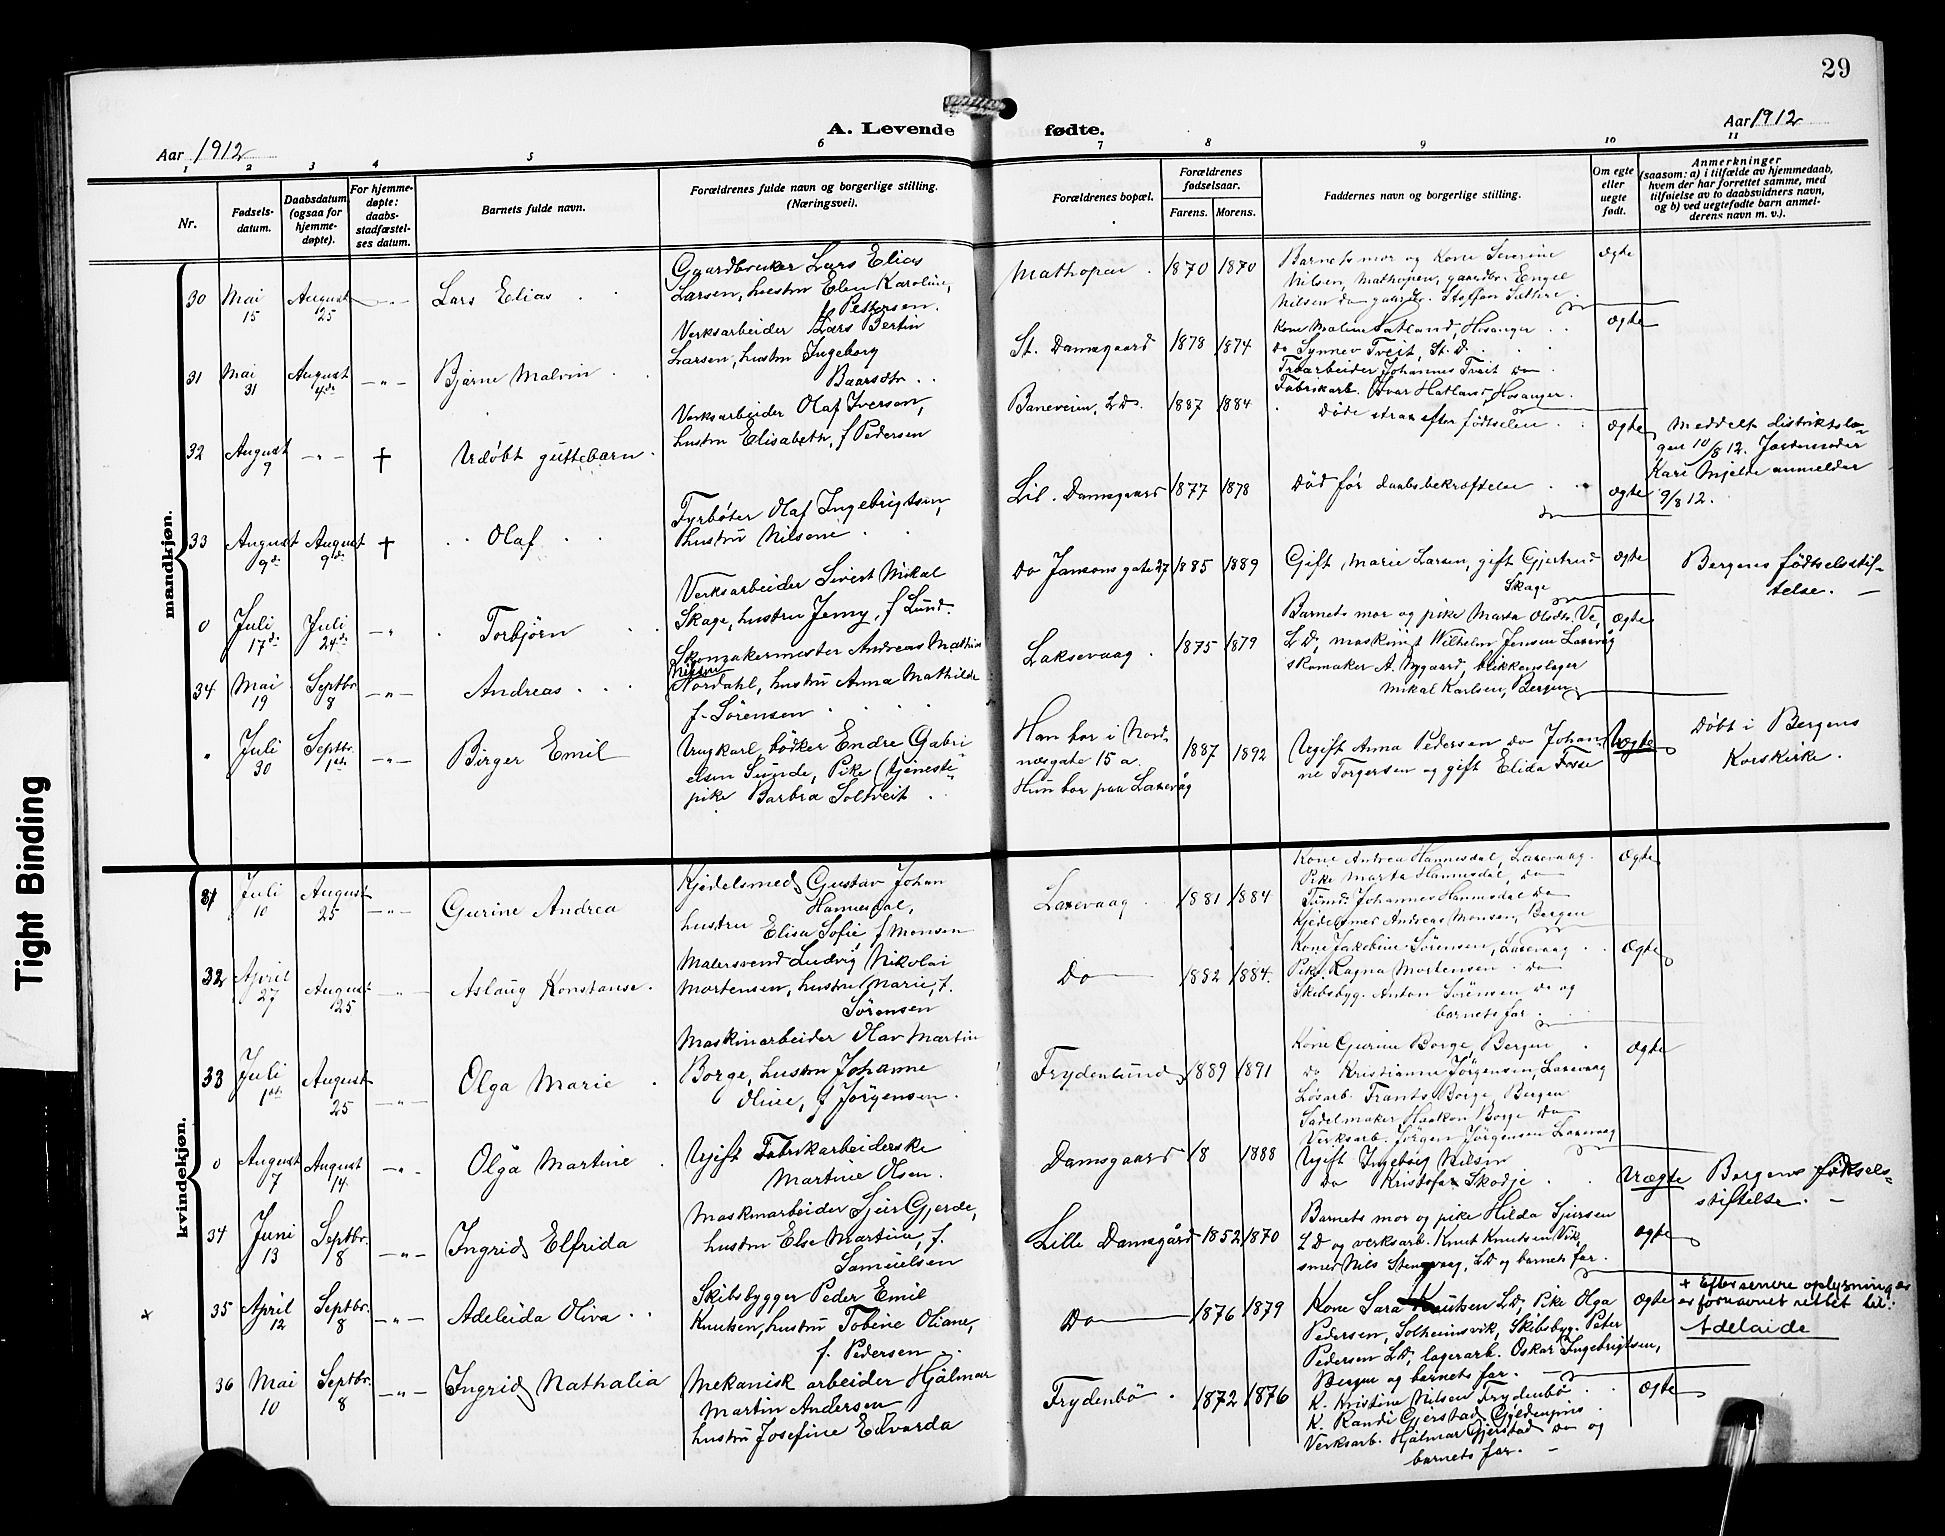 29
A. Levende fødte.
Aar 1912
Aar 1912
1 2 3 4 5 6 7 8 9 10 11
Nr.
Fødsels-
datum.
Daabsdatum
(ogsaa for
hjemme-
døpte).
For hjemme-
døpte:
daabs-
stadfæstel-
ses datum.
Barnets fulde navn.
Forældrenes fulde navn og borgerlige stilling.
(Næringsvei).
Forældrenes bopæl.
Forældrenes
fødselsaar.
Farens. Morens.
Faddernes navn og borgerlige stilling.
Om egte
eller
uegte
født.
Anmerkninger
(saasom: a) i tilfælde av hjemmedaab,
hvem der har forrettet samme, med
tilføielse av to daabsvidners navn,
og b) ved uegtefødte barn anmel-
derens navn m. v.).
Tight Binding
mandkjøn.
30 Mai 15 August 25 -"- Lars Elias
Gaardbruker Lars Elias
Larsen, hustru Elen Karoline,
f Pettersen.
Mathopen 1870 1870
Barnets mor og Kone Severine
Nilsen, Mathopen, gaardbr. Engel
Nilsen do gaardbr. Steffen Sæthre
Ægte
31 Mai 31 August 4de -"- Bjarne Malvin
Verksarbeider Lars Bertin
Larsen, hustru Ingeborg
Baarsdtr.
St. Damsgaard 1878 1874
Kone Maline Hatland, Hosanger
do Synnev Tveit, St. D.
Træarbeider Johannes Tveit Do
Fabrikarb. Ivar Hatland, Hosanger.
Ægte
32 August 9 -"- † Udøbt guttebarn
Verksarbeider Olaf Iversen,
hustru Elisabeth, f Pedersen
Baneveien, L D. 1887 1884
Døde strax efter fødselen
Ægte
Meddelt distriktslæ-
gen 10/8 12. Jordemoder
Kari Mjelde anmelder
9/8 12.
33 August 9de August 9de † Olaf
Fyrbøter Olaf Ingebrigtsen,
hustru Nilsine
Lil. Damsgaard 1877 1878
Død før daabsbekræftelse
Ægte
0 Juli 17de Juli 24de -"- Torbjørn
Verksarbeider Sivert Mikal
Skage, hustru Jenny, f Lund.
Do Jansons gate 27 1885 1889
Gift Marie Larsen, gift Gjertrud
Skage
Ægte
Bergens fødselsstif-
telse. -
34 Mai 19 Septbr. 8 -"- Andreas
Skomakermester Andreas Mathias
Nordahl, hustru Anna Mathilde
f. Sørensen
Laksevaag 1875 1879
Barnets mor og pike Marta Olsdtr. Ve,
L D, maskinist Wilhelm Jensen Laxevåg
skomaker A. Nygaard, blikkenslager
Mikal Karlsen, Bergen
Ægte
" Juli 30 Septbr. 1ste -"- Birger Emil
Ungkarl, bødker Endre Gabri
elsen Sunde, Pike (tjeneste-
pike Barbra Soltveit
Han bor i Nord-
nesgate 15 a.
Hun bor paa Laxevåg
1887 1892
Ugift Anna Pedersen do Johan-
ne Torgersen og gift Elida Fosse
Uægte
Døbt i Bergens
Korskirke.
kvindekjøn.
31 Juli 10 August 25 -"- Gurine Andrea
Kjedelsmed Gustav Johan
Hammesdal,
hustru Elisa Sofie f Monsen
Laxevaag 1881 1884
Kone Andrea Hammesdal, Laxevaag.
Pike Marta Hammesdal, do
Tømd. Johannes Hammesdal Do
Kjedelsmed Andreas Monsen, Bergen
Ægte
32 April 27 August 25 -"- Aslaug Konstanse
Malersvend Ludvig Nikolai
Mortensen, hustru Marie, f.
Sørensen
Do 1882 1884
Kone Jakobine Sørensen, Laxevaag
Pike Ragna Mortensen do
Skibsbyg. Anton Sørensen do og
barnets far
Ægte
33 Juli 1ste August 25 -"- Olga Marie
Maskinarbeider Olav Martin
Borge, hustru Johanne
Oline, f Jørgensen
Frydenlund 1889 1891
Kone Gurine Borge, Bergen
do Kristianne Jørgensen, Laxevaag
Løsarb. Frants Borge, Bergen
Sadelmaker Haakon Borge Do
Verksarb. Jørgen Jørgensen Laxevaag
Ægte
0 August 7 August 14 -"- Olga Martine
Ugift Fabrikarbeiderske
Martine Olsen.
Damsgaard 18 1888
Ugift Ingeborg Nilsen
Do Kristofa Skodje
Uægte
Bergens fødsels-
stiftelse. -
34 Juni 13 Septbr. 8 -"- Ingrid Elfrida
Maskinarbeider Sjur Gjerde,
hustru Else Martine, f.
Samuelsen
Lille Damsgård 1852 1870
Barnets mor og pike Hilda Sjursen
L D og verksarb. Knut Knutsen Vik,
smed Nils Stengvaag, L D og barnets far.
Ægte
x 35 April 12 Septbr. 8 -"- Adeleida Oliva
Skibsbygger Peder Emil
Knutsen, hustru Tobine Oliane,
f. Pedersen
Do 1876 1879
Kone Sara Knutsen L D, Pike Olga
Pedersen, Solheimsvik, Skibsbyg. Peter
Pedersen L D, lagerarb. Oskar Ingebrigtsen,
Bergen og barnets far.
Ægte
+ Efter senere oplysninger
er fornavnet rettet til:
Adelaide
36 Mai 10 Septbr. 8 -"- Ingrid Nathalia
Mekanisk arbeider Hjalmar
Martin Andersen
hustru Josefine Edvarda
Frydenbø 1872 1876
K. Kristine Nilsen Frydenbø
K. Randi Gjerstad, Gyldenpris
Verksarb. Hjalmar Gjerstad Do og
barnets far. -
Ægte